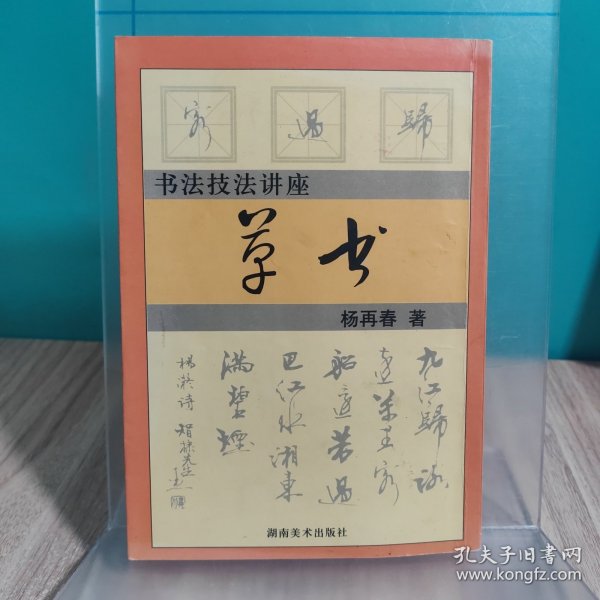 客 過 歸
书法技法讲座
草书
杨再春 著
九江歸路
遠萬里客
船還若過
巴江水湘東
滿碧煙
楊凝诗
湖南美术出版社
孔夫子旧书网
www.kongfz.com